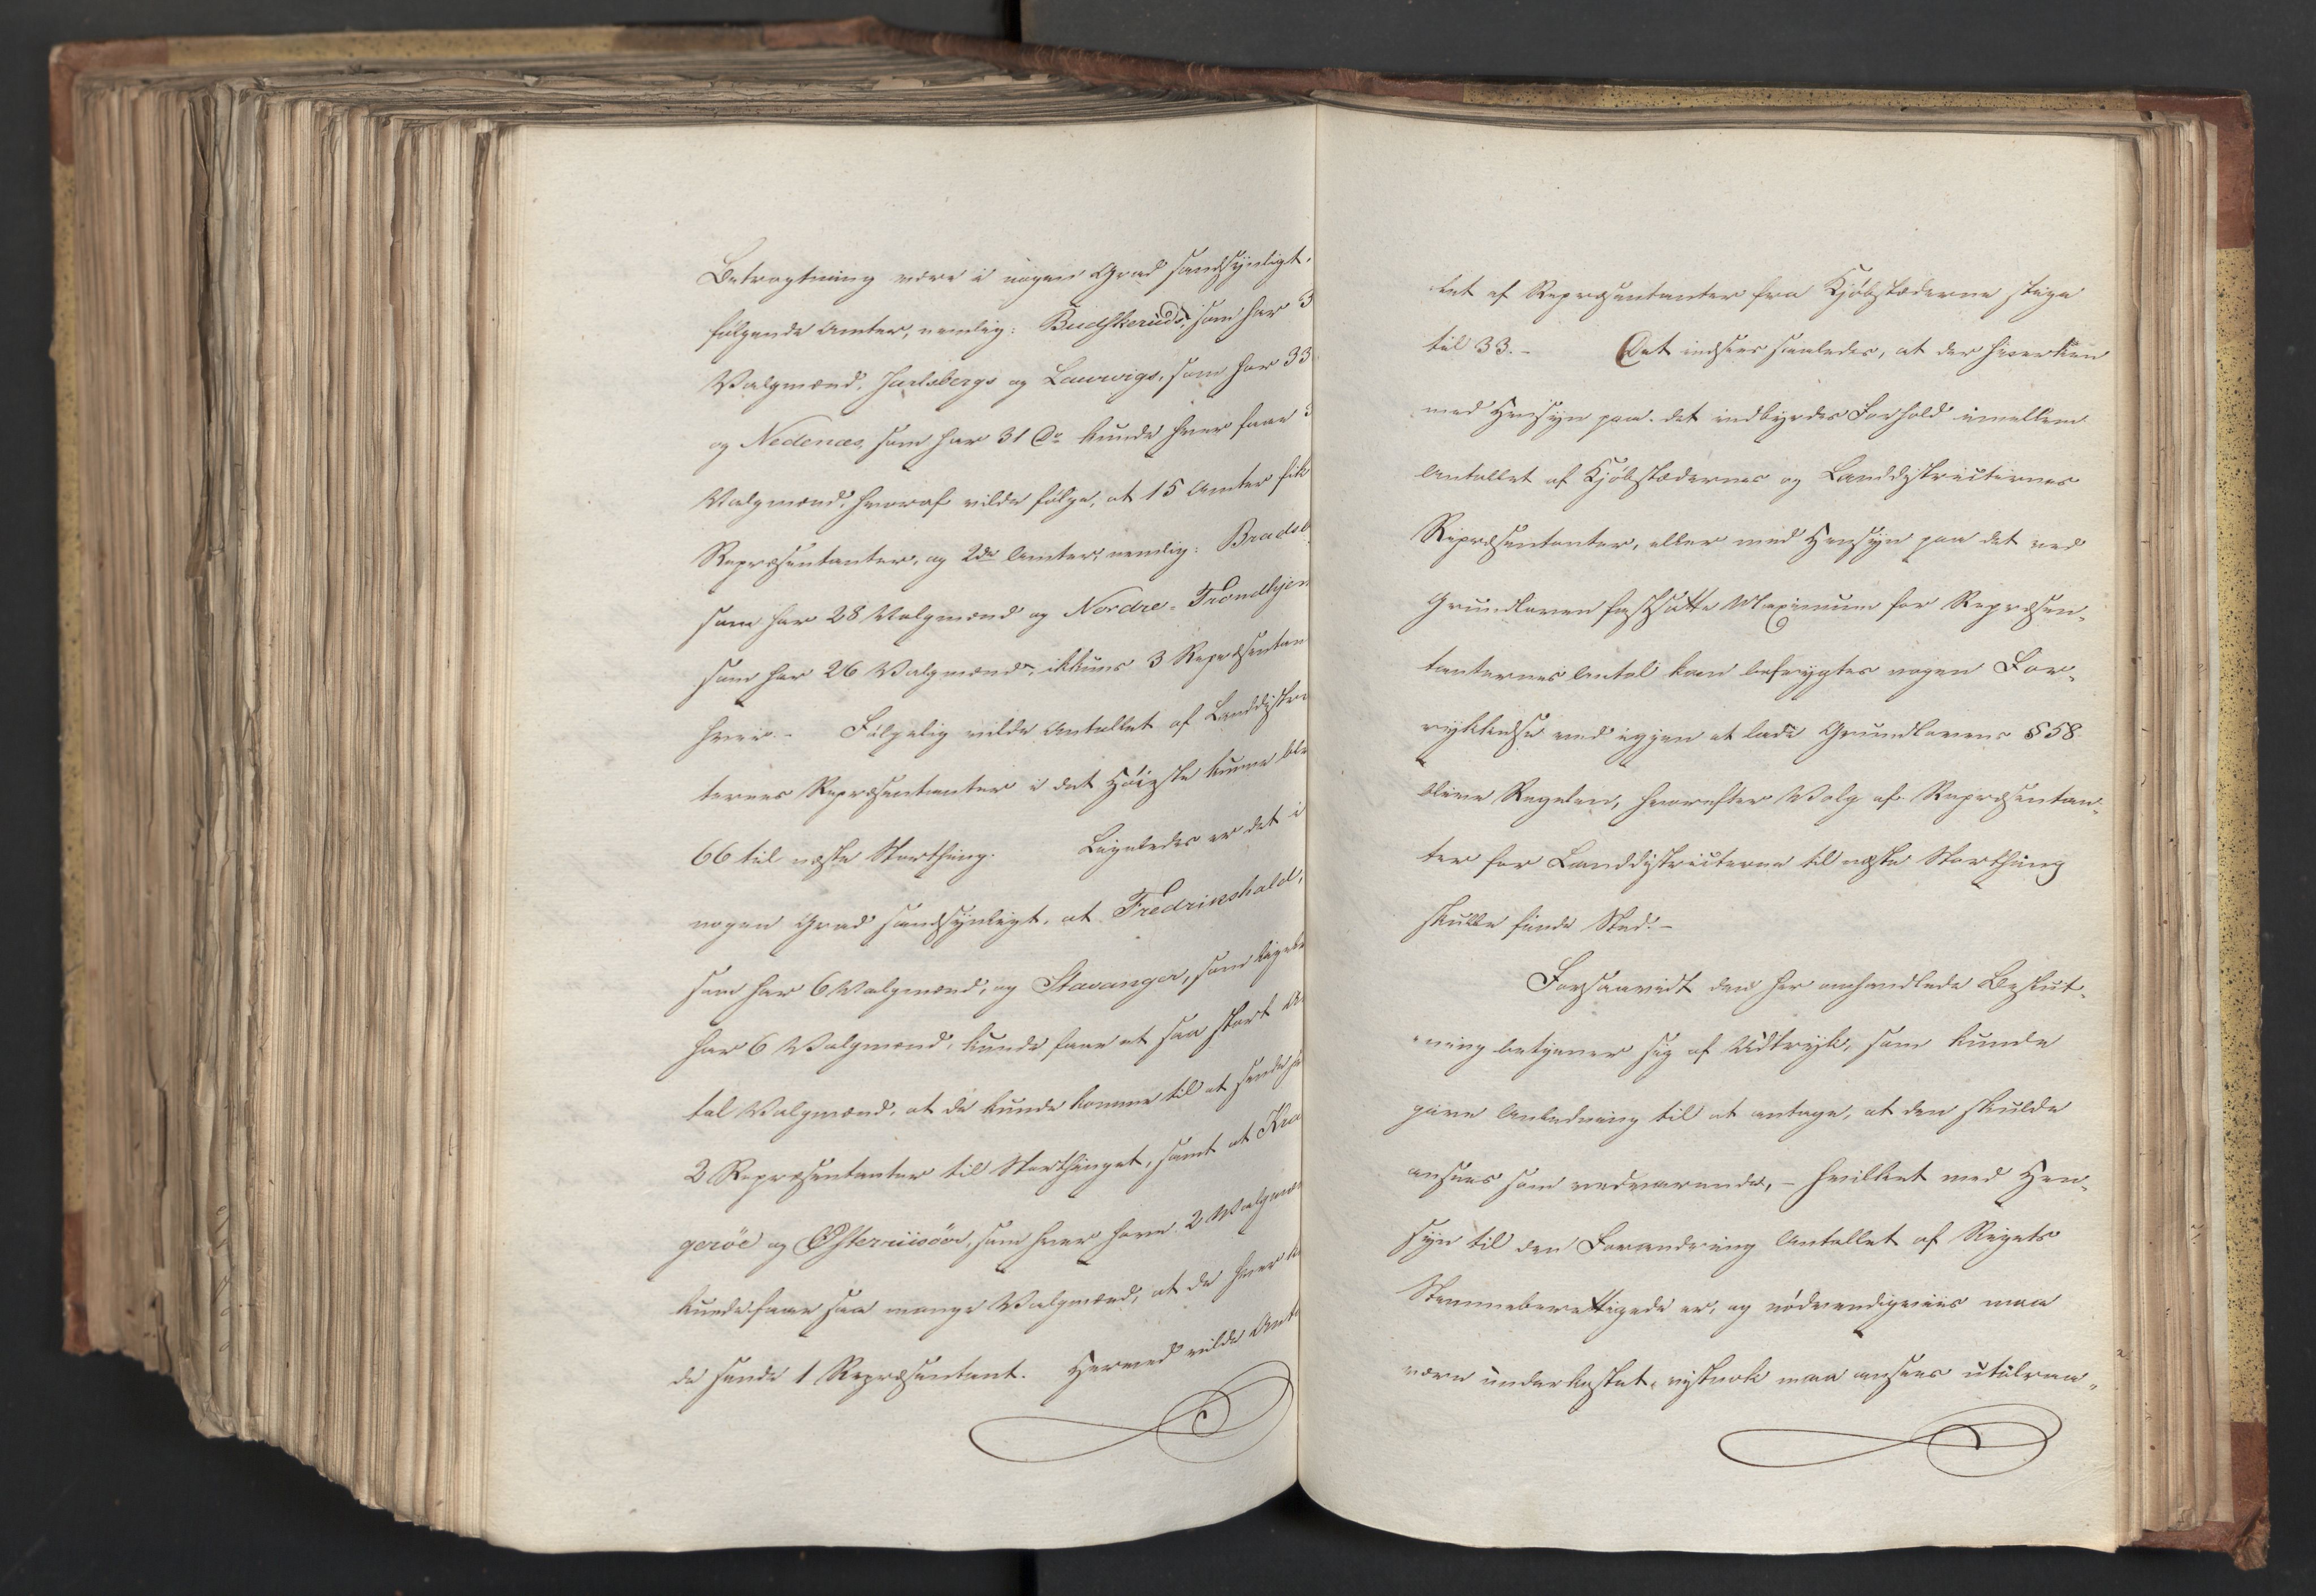 Betragtning være i nogen Grad sandsynligt.
følgende Amter, nemlig: Budskeruds, som har 3
Valgmænd, Jarlsbergs og Laurvigs, som har 33
og Nedenæs, som har 31 Do kunde hver faae 3
Valgmænd, hvoraf vilde følge, at 15 Amter fik
Repræsentanter, og 2de Amter, nemlig: Bradsb
som har 28 Valgmænd og Nordre-Trondhjem
som har 26 Valgmænd, ikkuns 3 Repræsentan
hver. - Følgelig vilde Antallet af Landdistric
ternes Repræsentanter i det Høieste kunne bli
66 til næste Storthing. Ligeledes er det i
nogen Grad sandsynligt, at Fredrikshald,
som har 6 Valgmænd, og Stavanger, som ligele
har 6 Valgmænd, kunde faae et saa stort An
tal Valgmænd, at de kunde komme til at sende h
2 Repræsentanter til Storthinget, samt at Kra
gerøe og Østerriisøer, som hver have 2 Valgmæn
kunde faae saa mange Valgmænd, at de hver k
de sende 1 Repræsentant. Hermed vilde Ant
let af Repræsentanter fra Kjøbstæderne stige
til 33. - Det indsees saaledes, at der hverken
med Hensyn paa det indbyrdes Forhold imellem
Antallet af Kjøbstædernes og Landdistricternes
Repræsentanter, eller med Hensyn paa det ved
Grundloven fastsatte Maximum for Repræsen-
tanternes Antal kan befrygtes nogen For-
rykkelse ved igjen at lade Grundlovens § 58
blive Regelen, hvorefter Valg af Repræsentan-
ter for Landdistricterne til næste Storthing
skulle finde Sted. -
Forsaavidt den her omhandlede Beslut-
ning betjener sig af Udtryk, som kunde
give Anledning til at antage, at den skulde
ansees som vedvarende, - hvilket med Hen-
syn til den Forandring Antallet af Rigets
Stemmeberettigede er, og nødvendigviis maa
være underkastet, vistnok maa ansees utilraa-